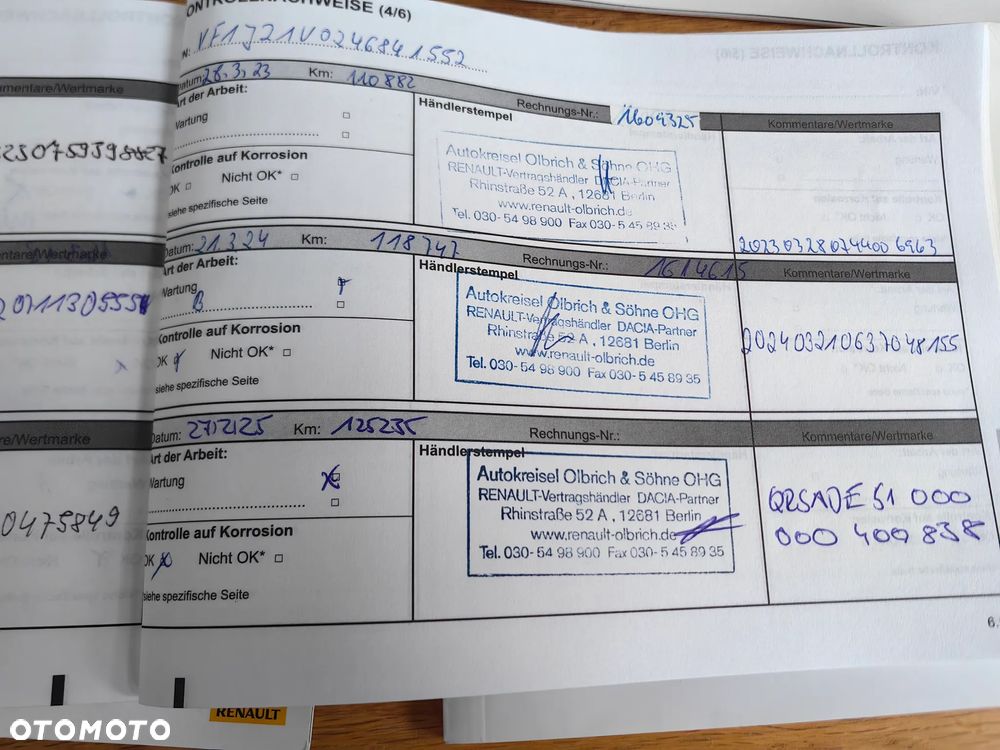 KONTROLLNACHWEISE (4/6)
N: VF1J21V0246841552
Datum: 28.3.23 Km: 110882 Rechnungs-Nr.: 1609325
Kommentare/Wertmarke
Art der Arbeit:
Wartung
Händlerstempel
Autokreisel Olbrich & Söhne OHG
RENAULT-Vertragshändler DACIA-Partner
Rhinstraße 52 A , 12681 Berlin
www.renault-olbrich.de
Tel. 030- 54 98 900 Fax 030- 5 45 89 35
Kontrolle auf Korrosion
OK Nicht OK*
siehe spezifische Seite
2023032807440 06963
Datum: 21.3.24 Km: 118747 Rechnungs-Nr.: 1614615
Kommentare/Wertmarke
Art der Arbeit:
Wartung
B
Händlerstempel
Autokreisel Olbrich & Söhne OHG
RENAULT-Vertragshändler DACIA-Partner
Rhinstraße 52 A , 12681 Berlin
www.renault-olbrich.de
Tel. 030- 54 98 900 Fax 030- 5 45 89 35
Kontrolle auf Korrosion
OK Nicht OK*
siehe spezifische Seite
202403210637048155
Datum: 27.2.25 Km: 125235 Rechnungs-Nr.:
Kommentare/Wertmarke
Art der Arbeit:
Wartung
Händlerstempel
Autokreisel Olbrich & Söhne OHG
RENAULT-Vertragshändler DACIA-Partner
Rhinstraße 52 A , 12681 Berlin
www.renault-olbrich.de
Tel. 030- 54 98 900 Fax 030- 5 45 89 35
Kontrolle auf Korrosion
OK Nicht OK*
siehe spezifische Seite
QRSADE51 000
000 400 838
0475849
RENAULT
OTOMOTO